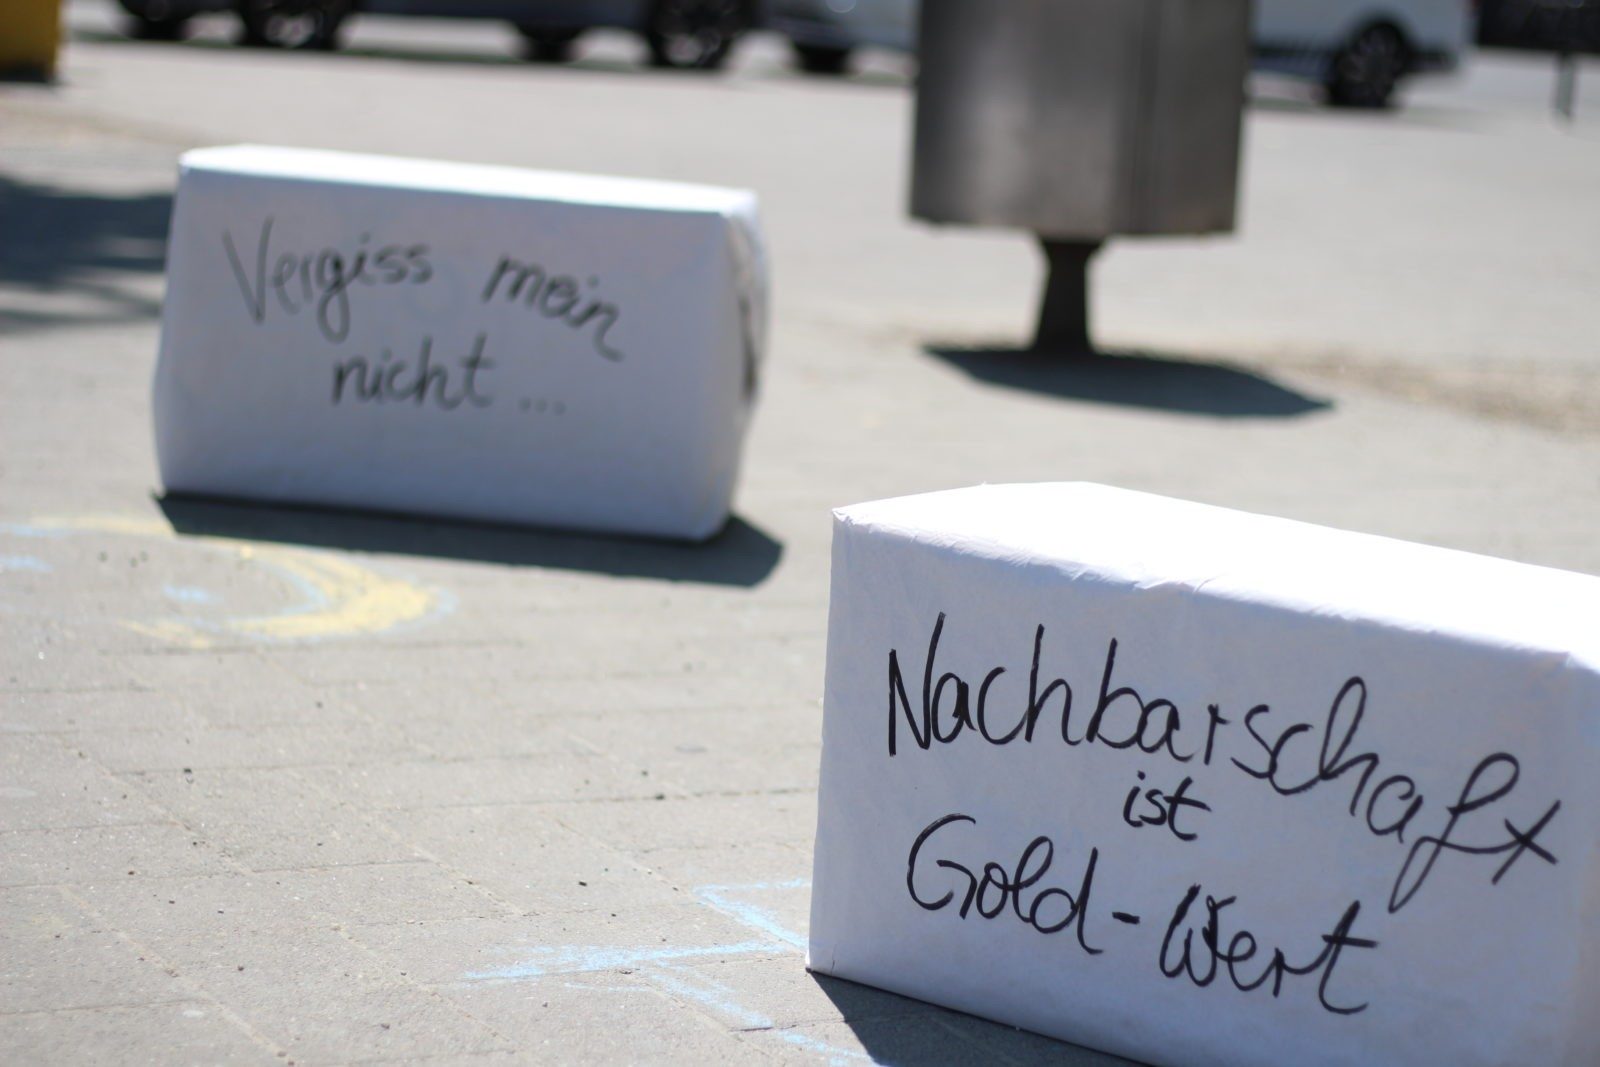 Vergiss mein
nicht ...
Nachbarschaft
ist
Gold-Wert